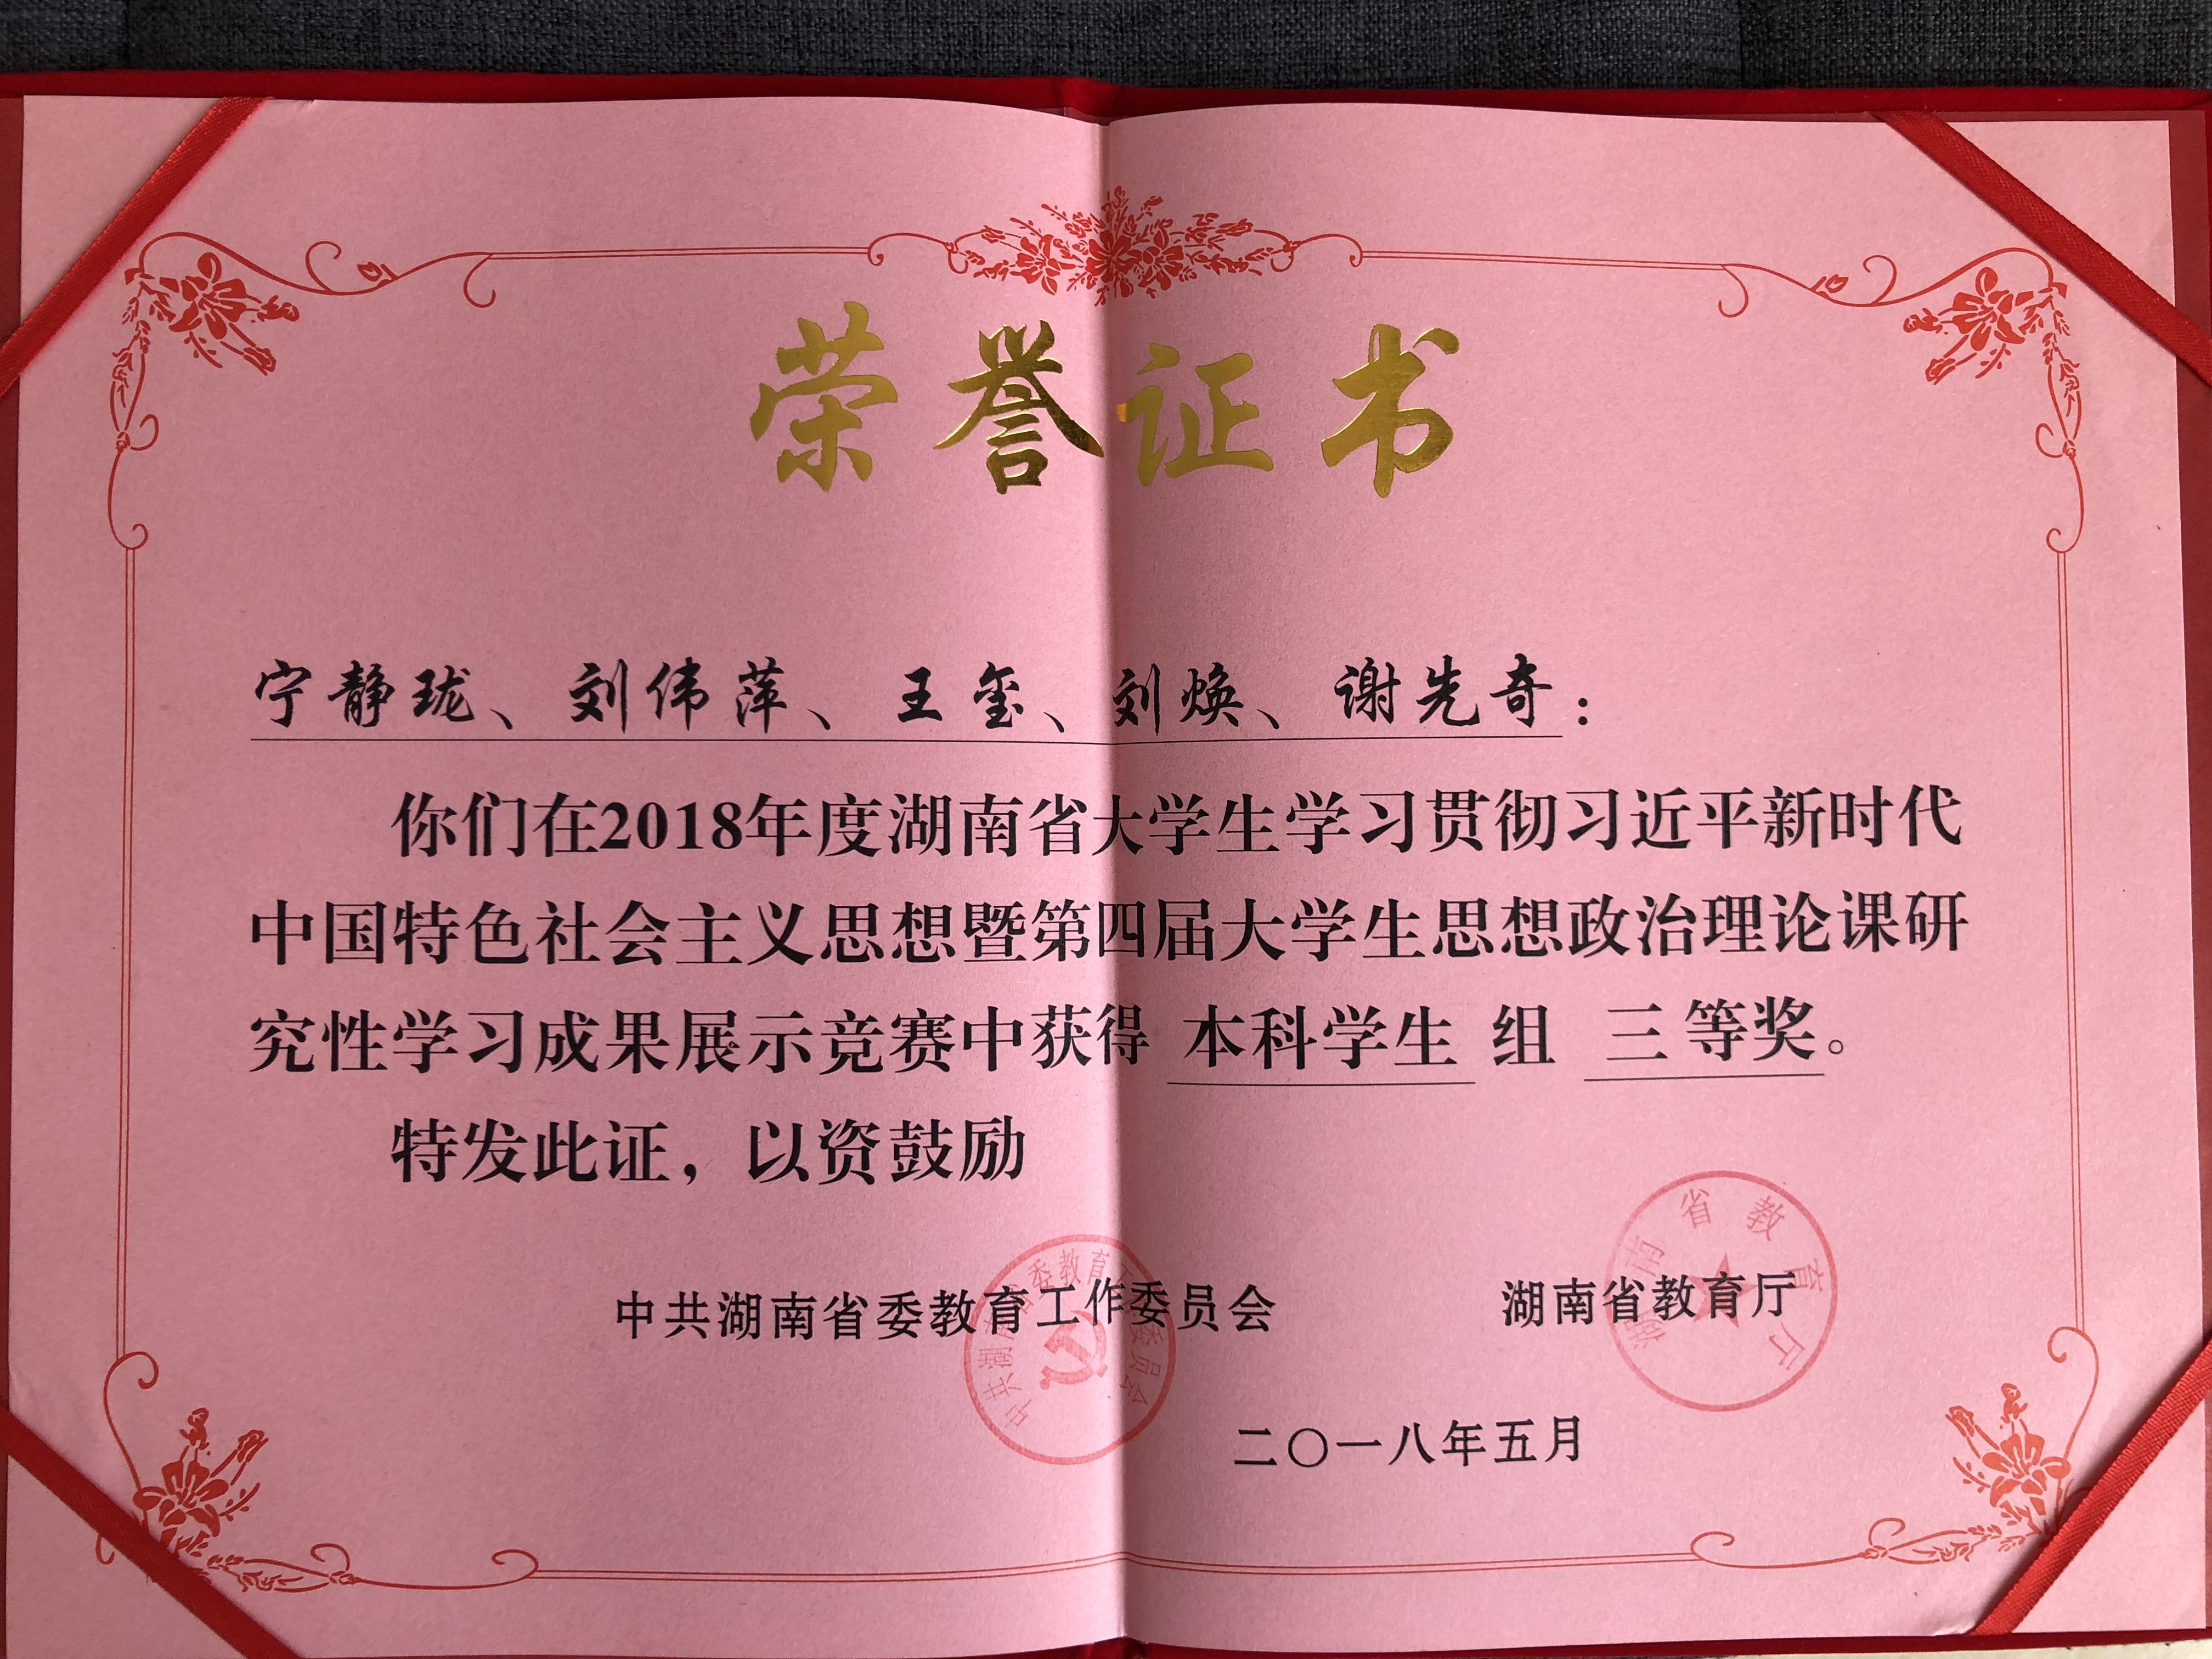 荣誉证书
宁静珑、刘伟萍、王玺、刘焕、谢先奇：
你们在2018年度湖南省大学生学习贯彻习近平新时代
中国特色社会主义思想暨第四届大学生思想政治理论课研
究性学习成果展示竞赛中获得 本科学生 组 三等奖。
特发此证，以资鼓励
中共湖南省委教育工作委员会 湖南省教育厅
中共湖南省委教育工作委员会
湖南省教育厅
二〇一八年五月